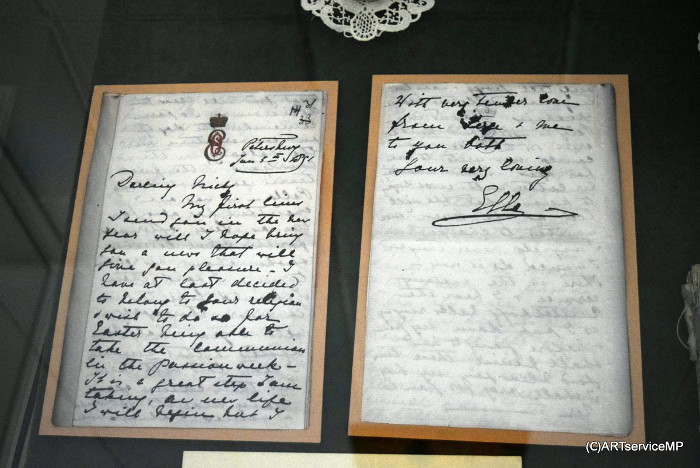 Petersburg
Jan 5th 1891
Darling Nicky
My first lines
I send you in the new
year will I hope bring
you a news that will
give you pleasure - I
have at last decided
to belong to your religion
& wish to do so for
Easter being able to
take the communion
in the Passion week -
It is a great step I am
taking, as new life
I will begin but I
With very tender love
from Serge & me
to you both
Your very loving
Ella
(C)ARTserviceMP